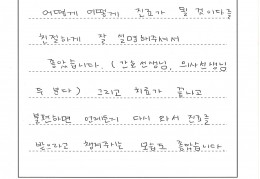 어떻게 어떻게 진료가 될 것이다를
친절하게 잘 설명해주셔서
좋았습니다. (간호선생님, 의사선생님
두 분다) 그리고 치료가 끝나고
불편하면 언제든지 다시 와서 진료를
받으라고 챙겨주시는 모습도 좋았습니다.